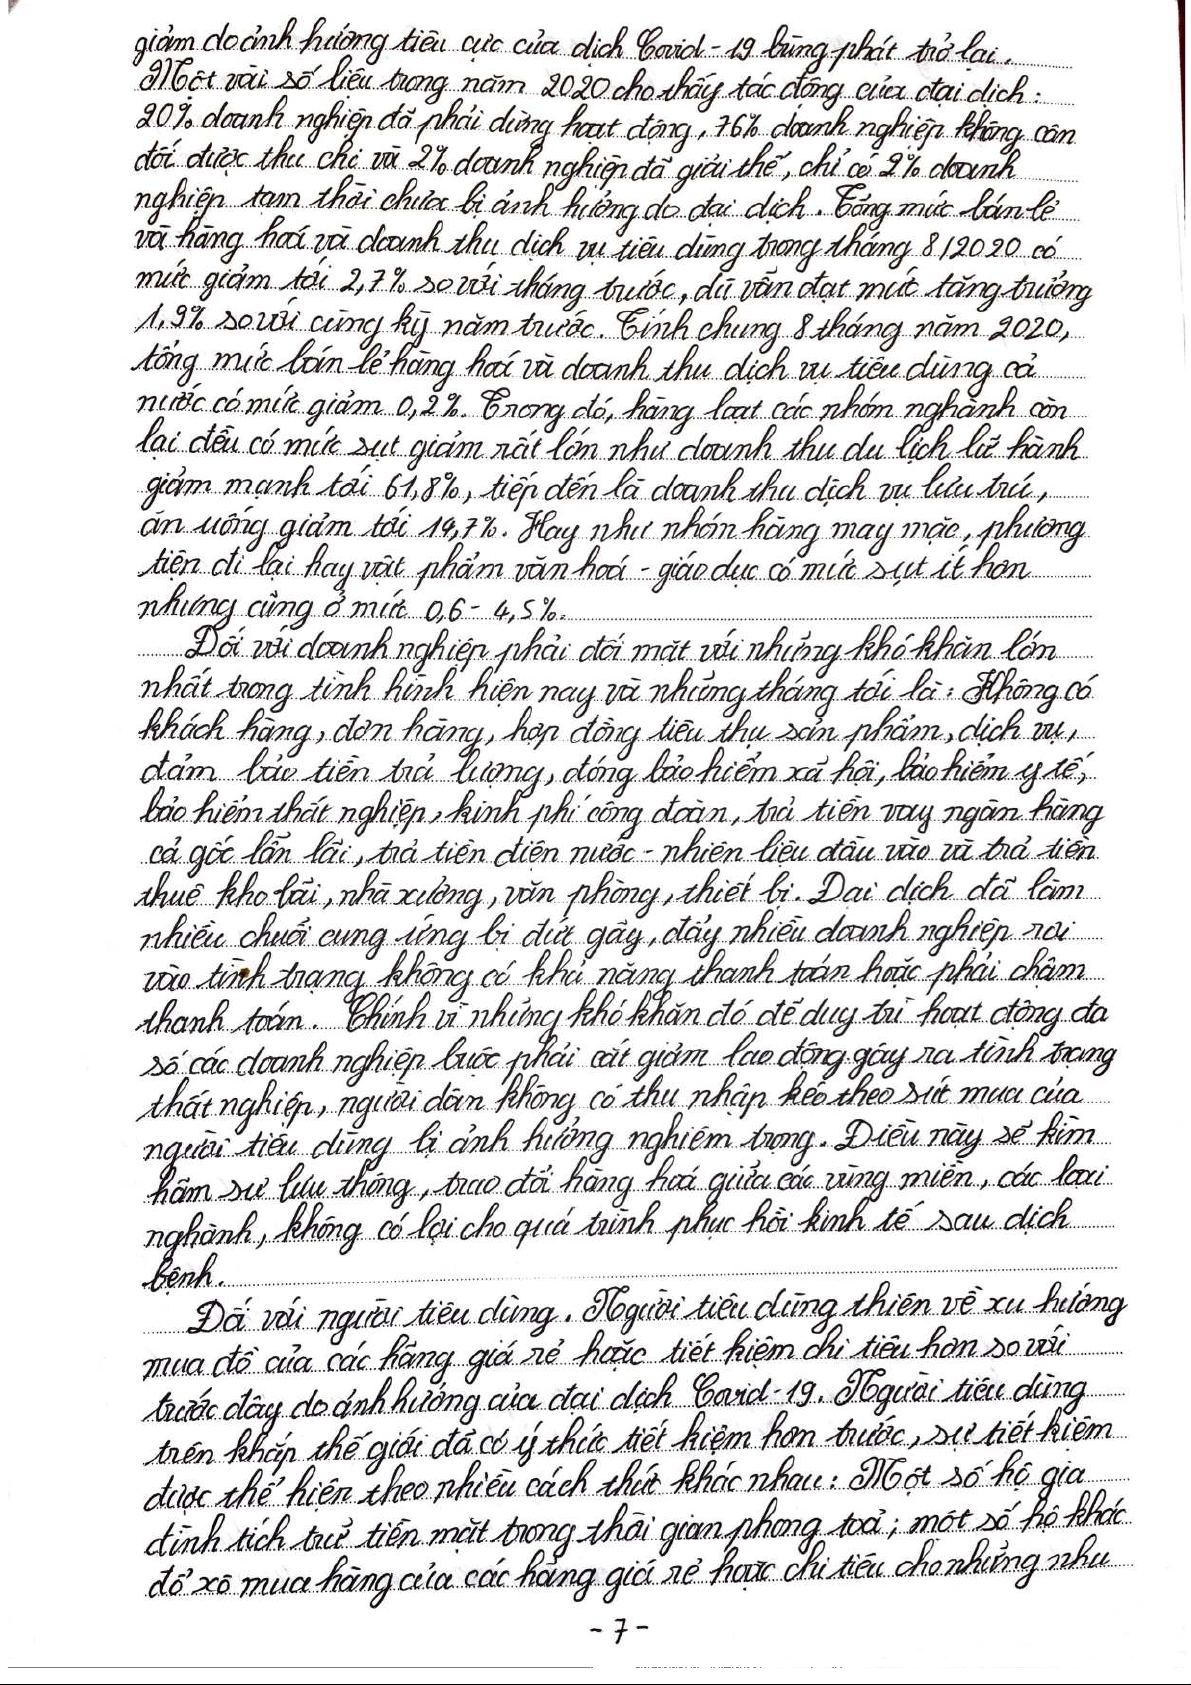 giảm do ảnh hưởng tiêu cực của dịch Covid-19 bùng phát trở lại.
Một vài số liệu trong năm 2020 cho thấy tác động của đại dịch:
20% doanh nghiệp đã phải dừng hoạt động, 76% doanh nghiệp không cân
đối được thu chi và 2% doanh nghiệp đã giải thể, chỉ có 2% doanh
nghiệp tạm thời chưa bị ảnh hưởng do đại dịch. Tổng mức bán lẻ
và hàng hoá và doanh thu dịch vụ tiêu dùng trong tháng 8/2020 có
mức giảm tới 2,7% so với tháng trước, dù vẫn đạt mức tăng trưởng
1,9% so với cùng kỳ năm trước. Tính chung 8 tháng năm 2020,
tổng mức bán lẻ hàng hoá và doanh thu dịch vụ tiêu dùng cả
nước có mức giảm 0,2%. Trong đó, hàng loạt các nhóm nghành còn
lại đều có mức sụt giảm rất lớn như doanh thu du lịch lữ hành
giảm mạnh tới 61,8%, tiếp đến là doanh thu dịch vụ lưu trú,
ăn uống giảm tới 19,7%. Hay như nhóm hàng may mặc, phương
tiện đi lại hay vật phẩm văn hoá - giáo dục có mức sụt ít hơn
nhưng cũng ở mức 0,6 - 4,5%.
Đối với doanh nghiệp phải đối mặt với những khó khăn lớn
nhất trong tình hình hiện nay và những tháng tới là: Không có
khách hàng, đơn hàng, hợp đồng tiêu thụ sản phẩm, dịch vụ,
đảm bảo tiền trả lương, đóng bảo hiểm xã hội, bảo hiểm y tế,
bảo hiểm thất nghiệp, kinh phí công đoàn, trả tiền vay ngân hàng
cả gốc lẫn lãi, trả tiền điện nước - nhiên liệu đầu vào và trả tiền
thuê kho bãi, nhà xưởng, văn phòng, thiết bị. Đại dịch đã làm
nhiều chuỗi cung ứng bị đứt gãy, đẩy nhiều doanh nghiệp rơi
vào tình trạng không có khả năng thanh toán hoặc phải chậm
thanh toán. Chính vì những khó khăn đó để duy trì hoạt động đa
số các doanh nghiệp buộc phải cắt giảm lao động gây ra tình trạng
thất nghiệp, người dân không có thu nhập kéo theo sức mua của
người tiêu dùng bị ảnh hưởng nghiêm trọng. Điều này sẽ kìm
hãm sự lưu thông, trao đổi hàng hoá giữa các vùng miền, các loại
nghành, không có lợi cho quá trình phục hồi kinh tế sau dịch
bệnh.
Đối với người tiêu dùng. Người tiêu dùng thiên về xu hướng
mua đồ của các hãng giá rẻ hoặc tiết kiệm chi tiêu hơn so với
trước đây do ảnh hưởng của đại dịch Covid-19. Người tiêu dùng
trên khắp thế giới đã có ý thức tiết kiệm hơn trước, sự tiết kiệm
được thể hiện theo nhiều cách thức khác nhau: Một số hộ gia
đình tích trữ tiền mặt trong thời gian phong toả; một số hộ khác
đổ xô mua hàng của các hãng giá rẻ hoặc chi tiêu cho những nhu
- 7 -